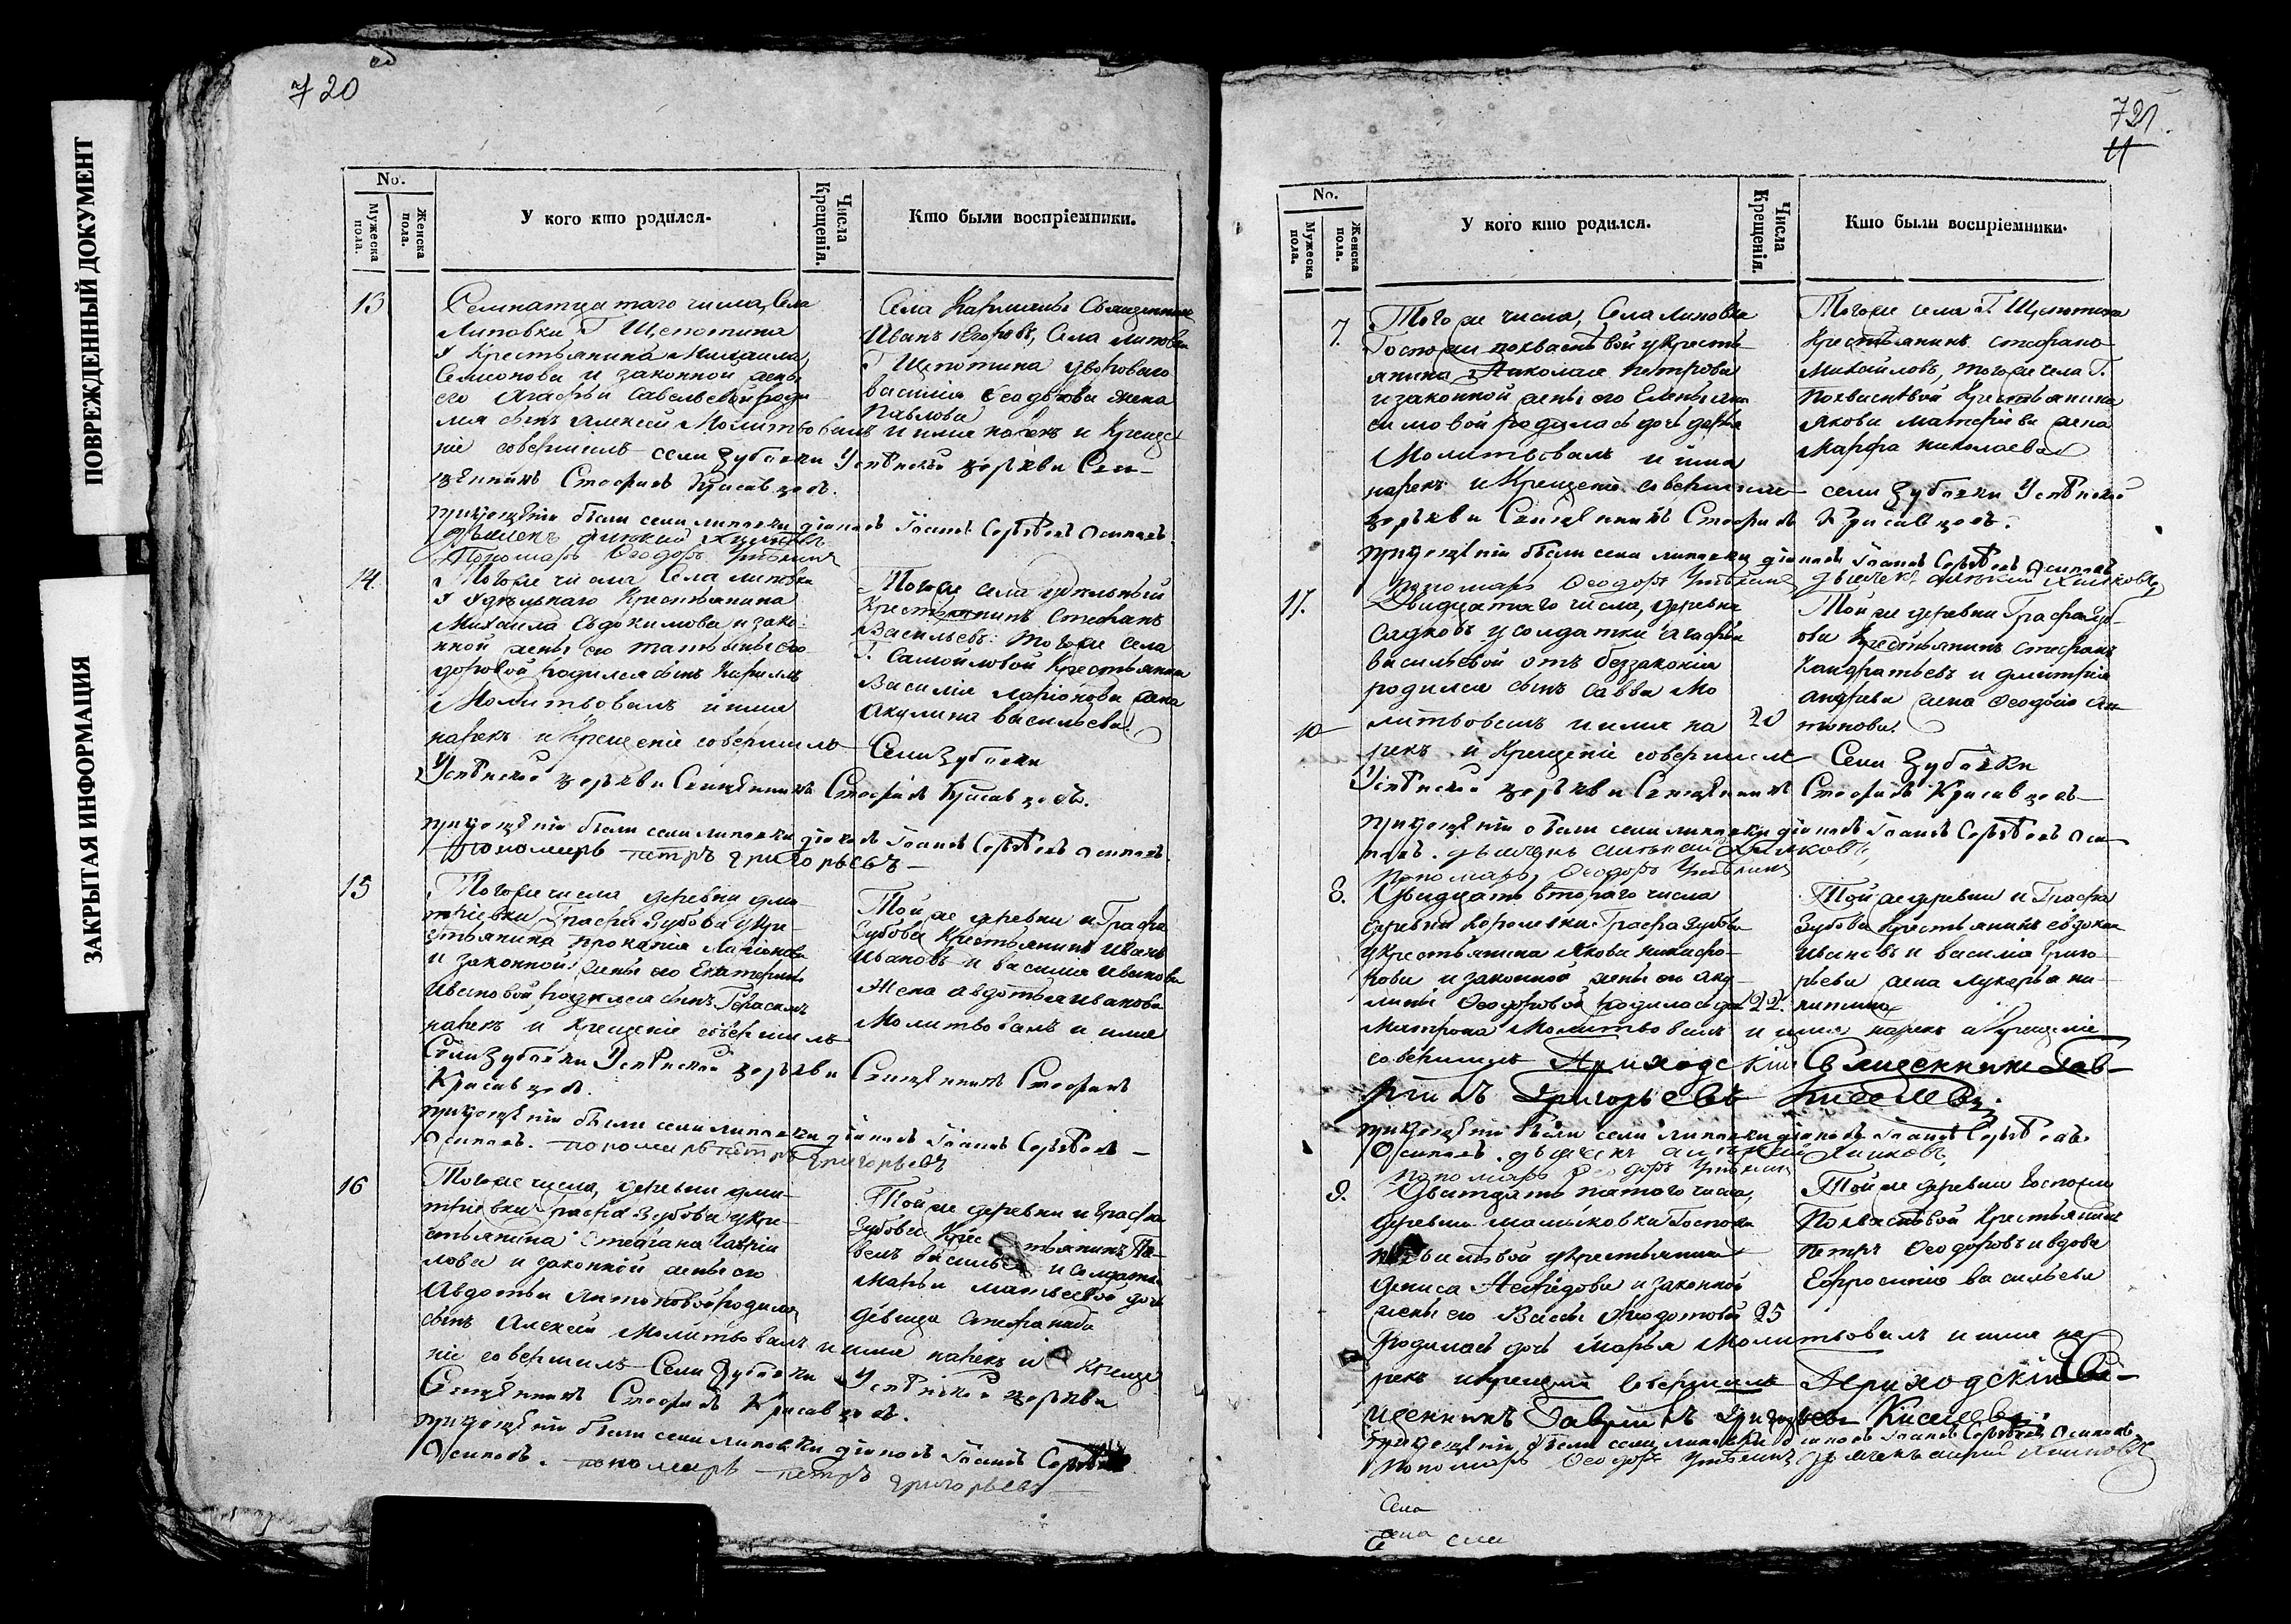 ПОВРЕЖДЕННЫЙ ДОКУМЕНТ
ЗАКРЫТАЯ ИНФОРМАЦИЯ
720
No.
Мужеска пола.
Женска пола.
У кого кто родился.
Числа Крещенія.
Кто были воспріемники.
13
Семнатцатаго числа, Села
Липовки Г Щепотина
у Крестьянина Михаила
Семионова и законной жены
его Агафьи Савельевой роди
лся сынъ Алексей Молитвовалъ и имя нарекъ и Креще
ніе совершилъ села Зубовки Успѣнской церькви Свя-
щенникъ Стефанъ Красавцовъ.
при крещеніи были села липовки діаконъ Іоаннъ Сергѣевъ Осиповъ
Пономарь Ѳеодоръ
Села Священникъ
Иванъ Егоровъ, Села Липовки
Г Щепотина двороваго
василія Ѳеодорова жена
Павлова
14.
Тогоже числа Села липовки
удѣльнаго Крестьянина
Михаила Евдокимова и зако-
нной жены его татьяны Ѳео-
доровой родился сынъ Кирилъ
Молитвовалъ и имя
нарекъ и Крещеніе совершилъ Села Зубовки
Успѣнской церькви Священникъ Стефанъ Красавцовъ.
при крещеніи были села липовки діаконъ Іоаннъ Сергѣевъ Осиповъ.
пономарь петръ григорьевъ
Тогоже села удѣльный
Крестьянинъ Стефанъ
Васильевъ: тогоже села
Г. Самойловой Крестьянина
Василія Ларіонова жена
Акулина васильева
15
Тогоже числа деревни дми-
тріевки Графа Зубова у кре-
стьянина прокапия Ларіонова
и законной жены его Екатерины
Ивановой родился сынъ Герасимъ
Молитвовалъ и имя
нарекъ и Крещеніе совершилъ
Села Зубовки Успѣнской церькви Священникъ Стефанъ
Красавцовъ.
при крещеніи были села липовки діаконъ Іоаннъ Сергѣевъ
Осиповъ. пономарь петръ григорьевъ
Той же деревни и Графа
Зубова Крестьянинъ Иванъ
Ивановъ и василия Иванова
Жена авдотья иванова
16
Тогоже числа, деревни дми-
тріевки Графа Зубова у кре-
стьянина Стефана Гаврии
лова и законной жены его
Авдотьи Антоновой родился
сынъ Алексей Молитвовалъ и имя нарекъ и Креще
ніе совершилъ Села Зубовки Успѣнской церькви
Священникъ Стефанъ Красавцовъ.
при крещеніи были села липовки діаконъ Іоаннъ
Осиповъ. пономарь петръ григорьевъ
Той же деревни и Графа
Зубова Крестьянинъ Па-
велъ и солдатки
Марьи матвеевой дочь
девица Степанида
721
11
No.
Мужеска пола.
Женска пола.
У кого кто родился.
Числа Крещенія.
Кто были воспріемники.
7.
Того же числа, Села липовки
Госпожи похвисневой у кресть-
янина Николая Петрова
и законной жены его Елены
симовой родилась дочь дарья
Молитвовалъ и имя
нарекъ и Крещеніе совершилъ села Зубовки Успѣнской
церькви Священникъ Стефанъ Красавцовъ.
при крещеніи были села липовки діаконъ Іоаннъ Сергѣевъ Осиповъ
пономарь Ѳеодоръ
Тогоже села Г. Щепотина
Крестьянинъ стефанъ
Михайловъ, тогоже села Г.
Похвисневой Крестьянина
Якова матвеева жена
Марфа николаева
17.
Двадцатаго числа, деревни
Садковъ у солдатки агафьи
васильевой отъ беззаконія
родился сынъ Савва Мо
литвовалъ и имя на
рекъ и Крещеніе совершилъ Села Зубовки
Успѣнской церькви Священникъ Стефанъ Красавцовъ
при крещеніи были села липовки діаконъ Іоаннъ Сергѣевъ Оси-
повъ.
пономарь Ѳеодоръ
10
20
Той же деревни Графа Зуб-
ова Крестьянинъ стефанъ
Кандратьевъ и дмитрія
андреева жена Ѳеодосія Ан-
тонова.
8.
Двадцать втораго числа
деревни Королевки Графа Зубова
у крестьянина Якова никифо-
рова и законной жены его аку-
лины Ѳеодоровой родилась дочь
Матрона Молитвовалъ и имя нарекъ и Крещеніе
совершилъ Приходскій Священникъ Гав-
ріилъ Григорьевъ Киселевъ.
при крещеніи были села липовки діаконъ Іоаннъ Сергѣевъ
Осиповъ.
пономарь Ѳеодоръ
22.
Той же деревни и Графа
Зубова Крестьянинъ евдоким
Ивановъ и василія Григо-
рьева жена лукерья ни-
китина
9.
Дватцать пятого числа,
деревни Госпожи
у крестьянина
дениса и законной
жены его Васы Ѳеодотовой
родилась дочь Марья Молитвовалъ и имя на
рекъ и крещеніе совершилъ Приходскій Свя-
щенникъ Гавріилъ Григорьевъ Киселевъ.
при крещеніи были села липовки діаконъ Іоаннъ Сергѣевъ Осиповъ.
пономарь Ѳеодоръ
25
Той же деревни Госпожи
Похвисневой Крестьянинъ
петръ Ѳеодоровъ и вдова
Ефросинія васильева
Села
села